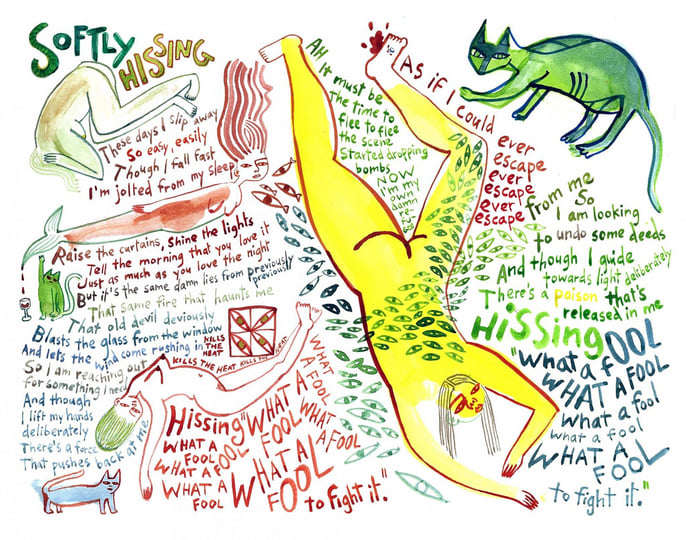 SOFTLY
HISSING
These days I slip away
So easy, easily
Though I fall fast
I'm jolted from my sleep
Raise the curtains, Shine the lights
Tell the morning that you love it
Just as much as you love the night
But it's the same damn lies from previously
previously
That same fire that haunts me
That old devil deviously
Blasts the glass from the window
And lets the wind come rushing in
KILLS
THE
HEAT
KILLS THE HEAT KILLS THE HEAT
So I am reaching out
for something I need
And though
I lift my hands
deliberately
There's a force
That pushes back at me
Hissing "WHAT A
FOOL
WHAT A
FOOL
WHAT A
FOOL
WHAT A FOOL
WHAT A FOOL
WHAT A
FOOL
WHAT A
FOOL
to fight it."
AH
It must be
the time to
flee to flee
the scene
Started dropping
bombs
NOW
I'm my
own
damn
re-
AS if I could
ever
escape
ever
escape
ever
escape
ever
escape
from me
So
I am looking
to undo some deeds
And though I guide
towards light deliberately
There's a poison that's
released in me
HiSSing
"What a fOOL
WHAT A FOOL
what a fool
what a fool
WHAT A
FOOL
to fight it."